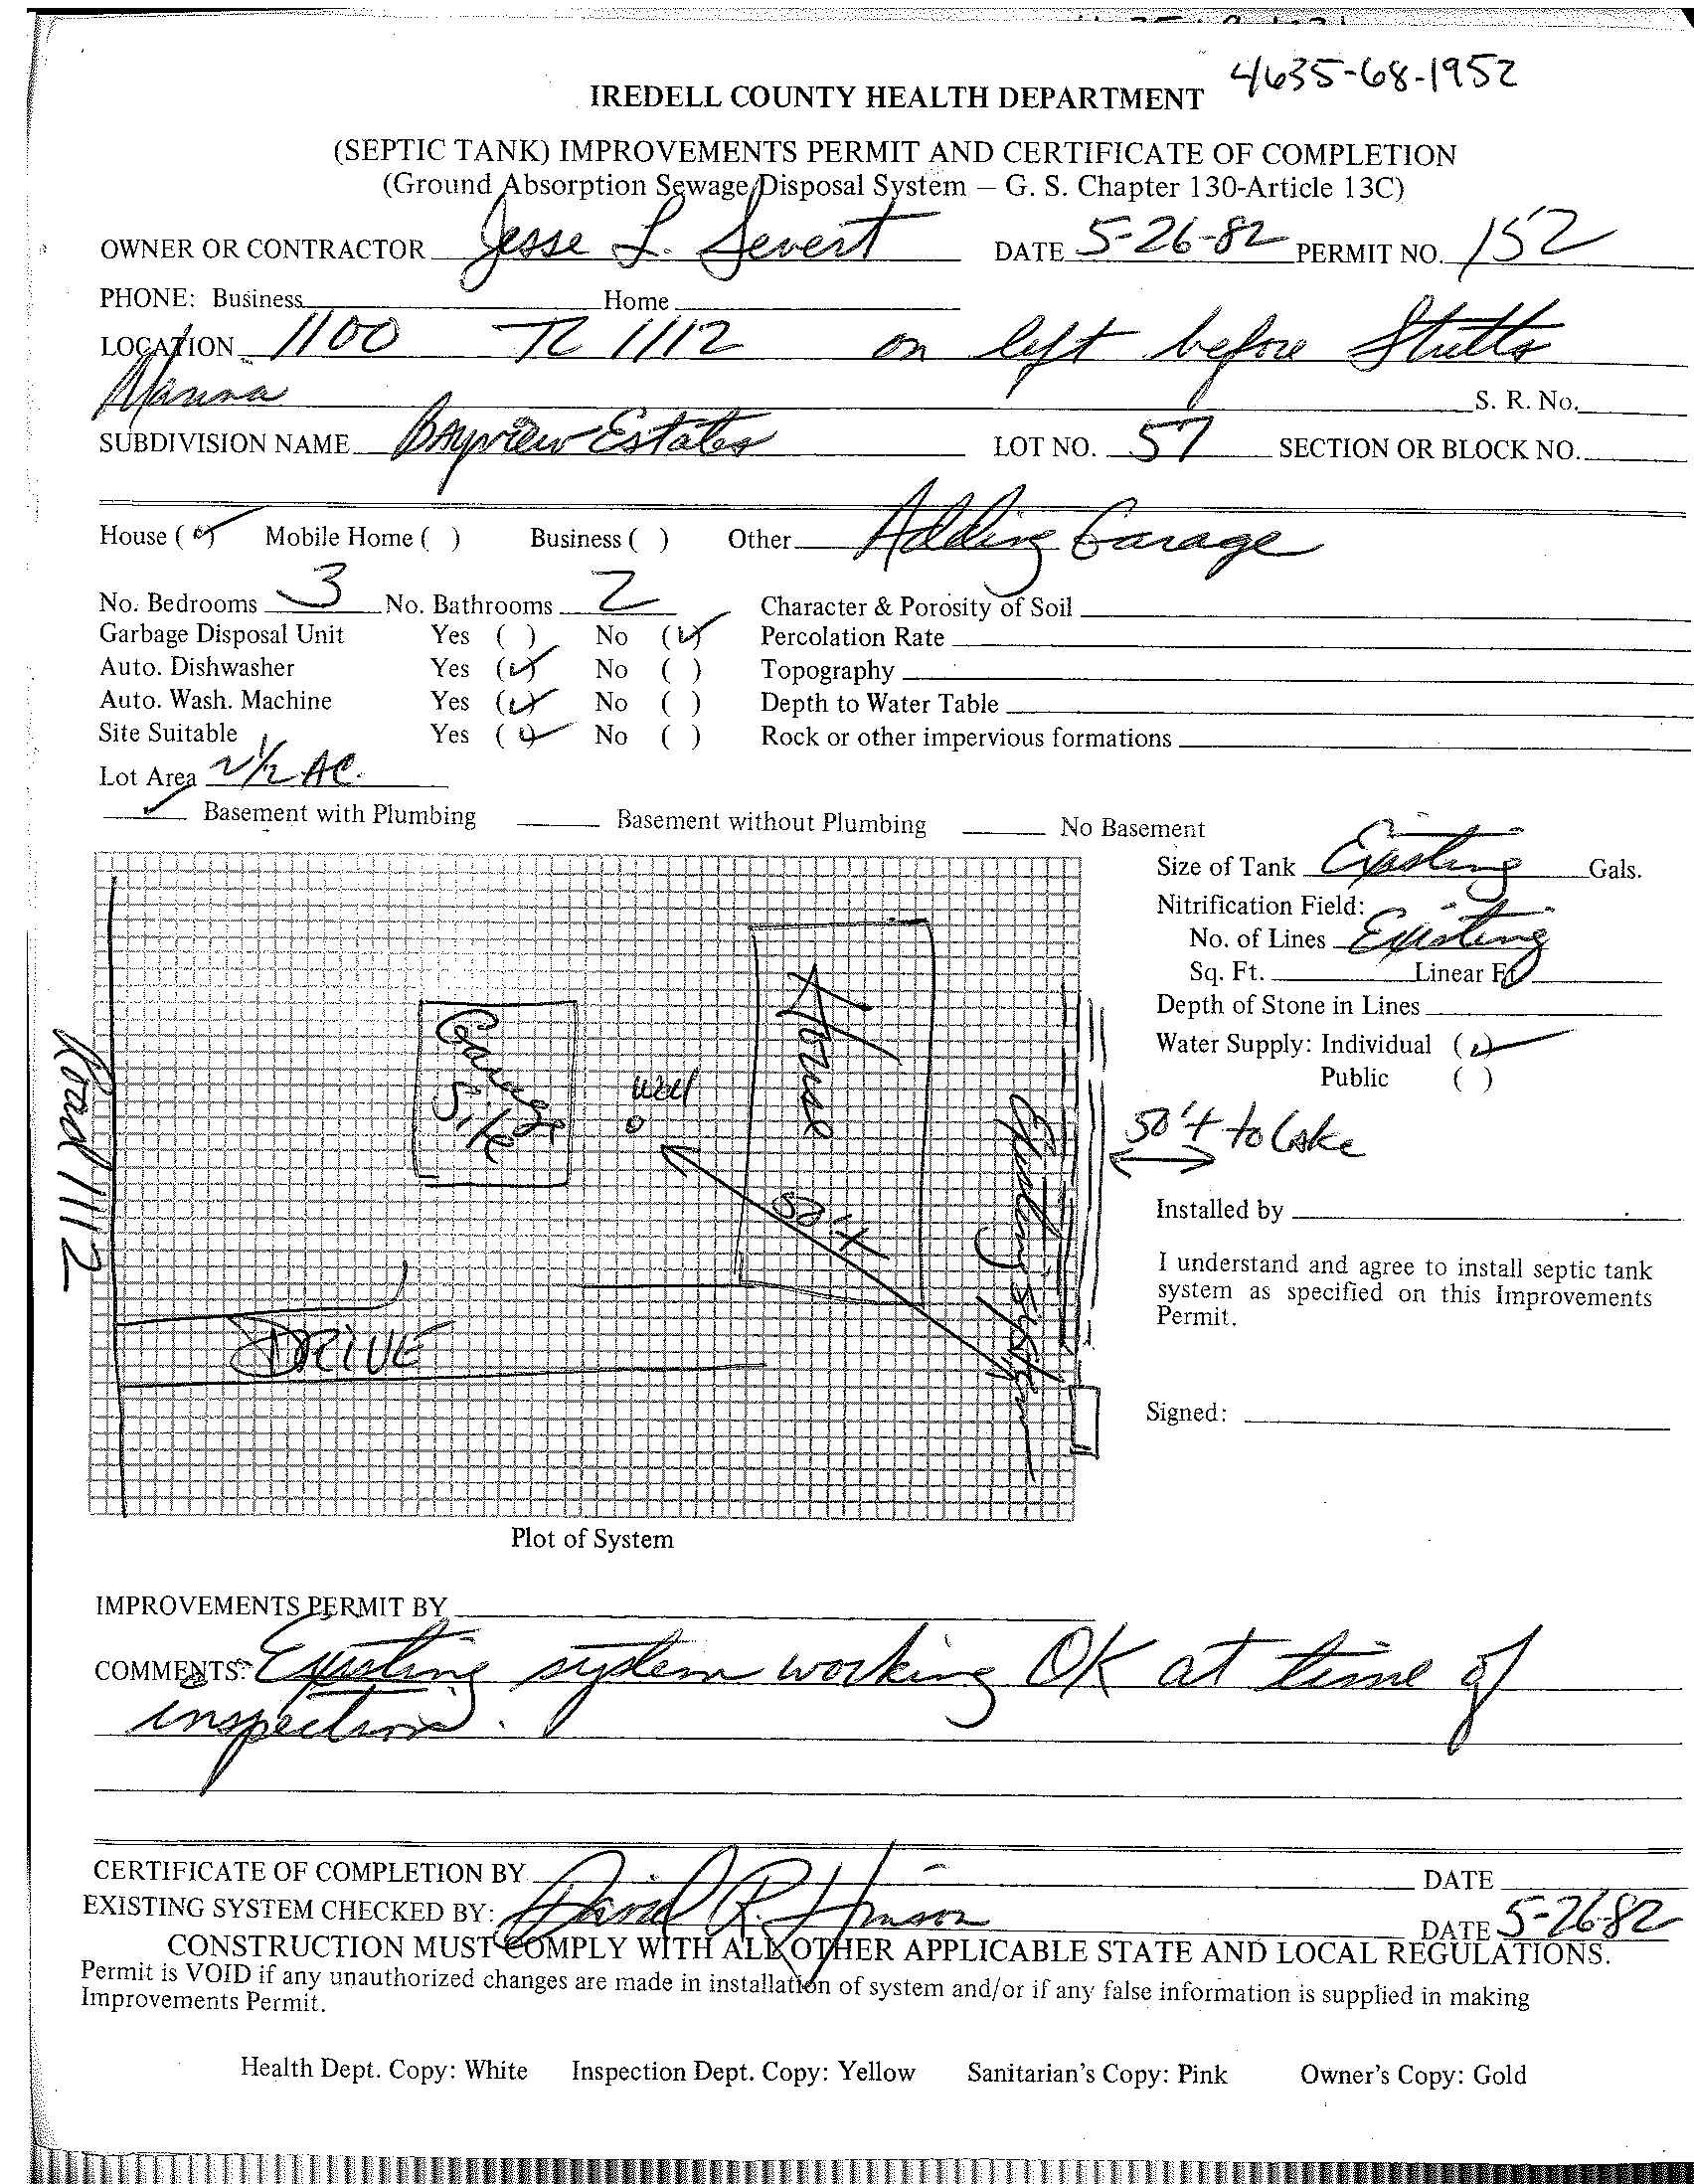 4635-68-1952
IREDELL COUNTY HEALTH DEPARTMENT
(SEPTIC TANK) IMPROVEMENTS PERMIT AND CERTIFICATE OF COMPLETION
(Ground Absorption Sewage Disposal System — G. S. Chapter 130-Article 13C)
OWNER OR CONTRACTOR Jesse L. Severt DATE 5-26-82 PERMIT NO. 152
PHONE: Business Home
LOCATION 1100 TL 1112 on left before Stutts
Marina S. R. No.
SUBDIVISION NAME Bayview Estates LOT NO. 57 SECTION OR BLOCK NO.
House (✓) Mobile Home ( ) Business ( ) Other Adding Garage
No. Bedrooms 3 No. Bathrooms 2 Character & Porosity of Soil
Garbage Disposal Unit Yes ( ) No (✓) Percolation Rate
Auto. Dishwasher Yes (✓) No ( ) Topography
Auto. Wash. Machine Yes (✓) No ( ) Depth to Water Table
Site Suitable Yes (✓) No ( ) Rock or other impervious formations
Lot Area 2 1/2 AC.
✓ Basement with Plumbing Basement without Plumbing No Basement
Size of Tank Existing Gals.
Nitrification Field:
No. of Lines Existing
Sq. Ft. Linear Ft.
Depth of Stone in Lines
Water Supply: Individual (✓)
Public ( )
Road 1112
Garage Site
well
House
50'+
Existing System
DRIVE
50'+ to Lake
Installed by
I understand and agree to install septic tank
system as specified on this Improvements
Permit.
Signed:
Plot of System
IMPROVEMENTS PERMIT BY
COMMENTS: Existing system working OK at time of
inspection.
CERTIFICATE OF COMPLETION BY DATE
EXISTING SYSTEM CHECKED BY: David R. Hinson DATE 5-26-82
CONSTRUCTION MUST COMPLY WITH ALL OTHER APPLICABLE STATE AND LOCAL REGULATIONS.
Permit is VOID if any unauthorized changes are made in installation of system and/or if any false information is supplied in making
Improvements Permit.
Health Dept. Copy: White Inspection Dept. Copy: Yellow Sanitarian's Copy: Pink Owner's Copy: Gold